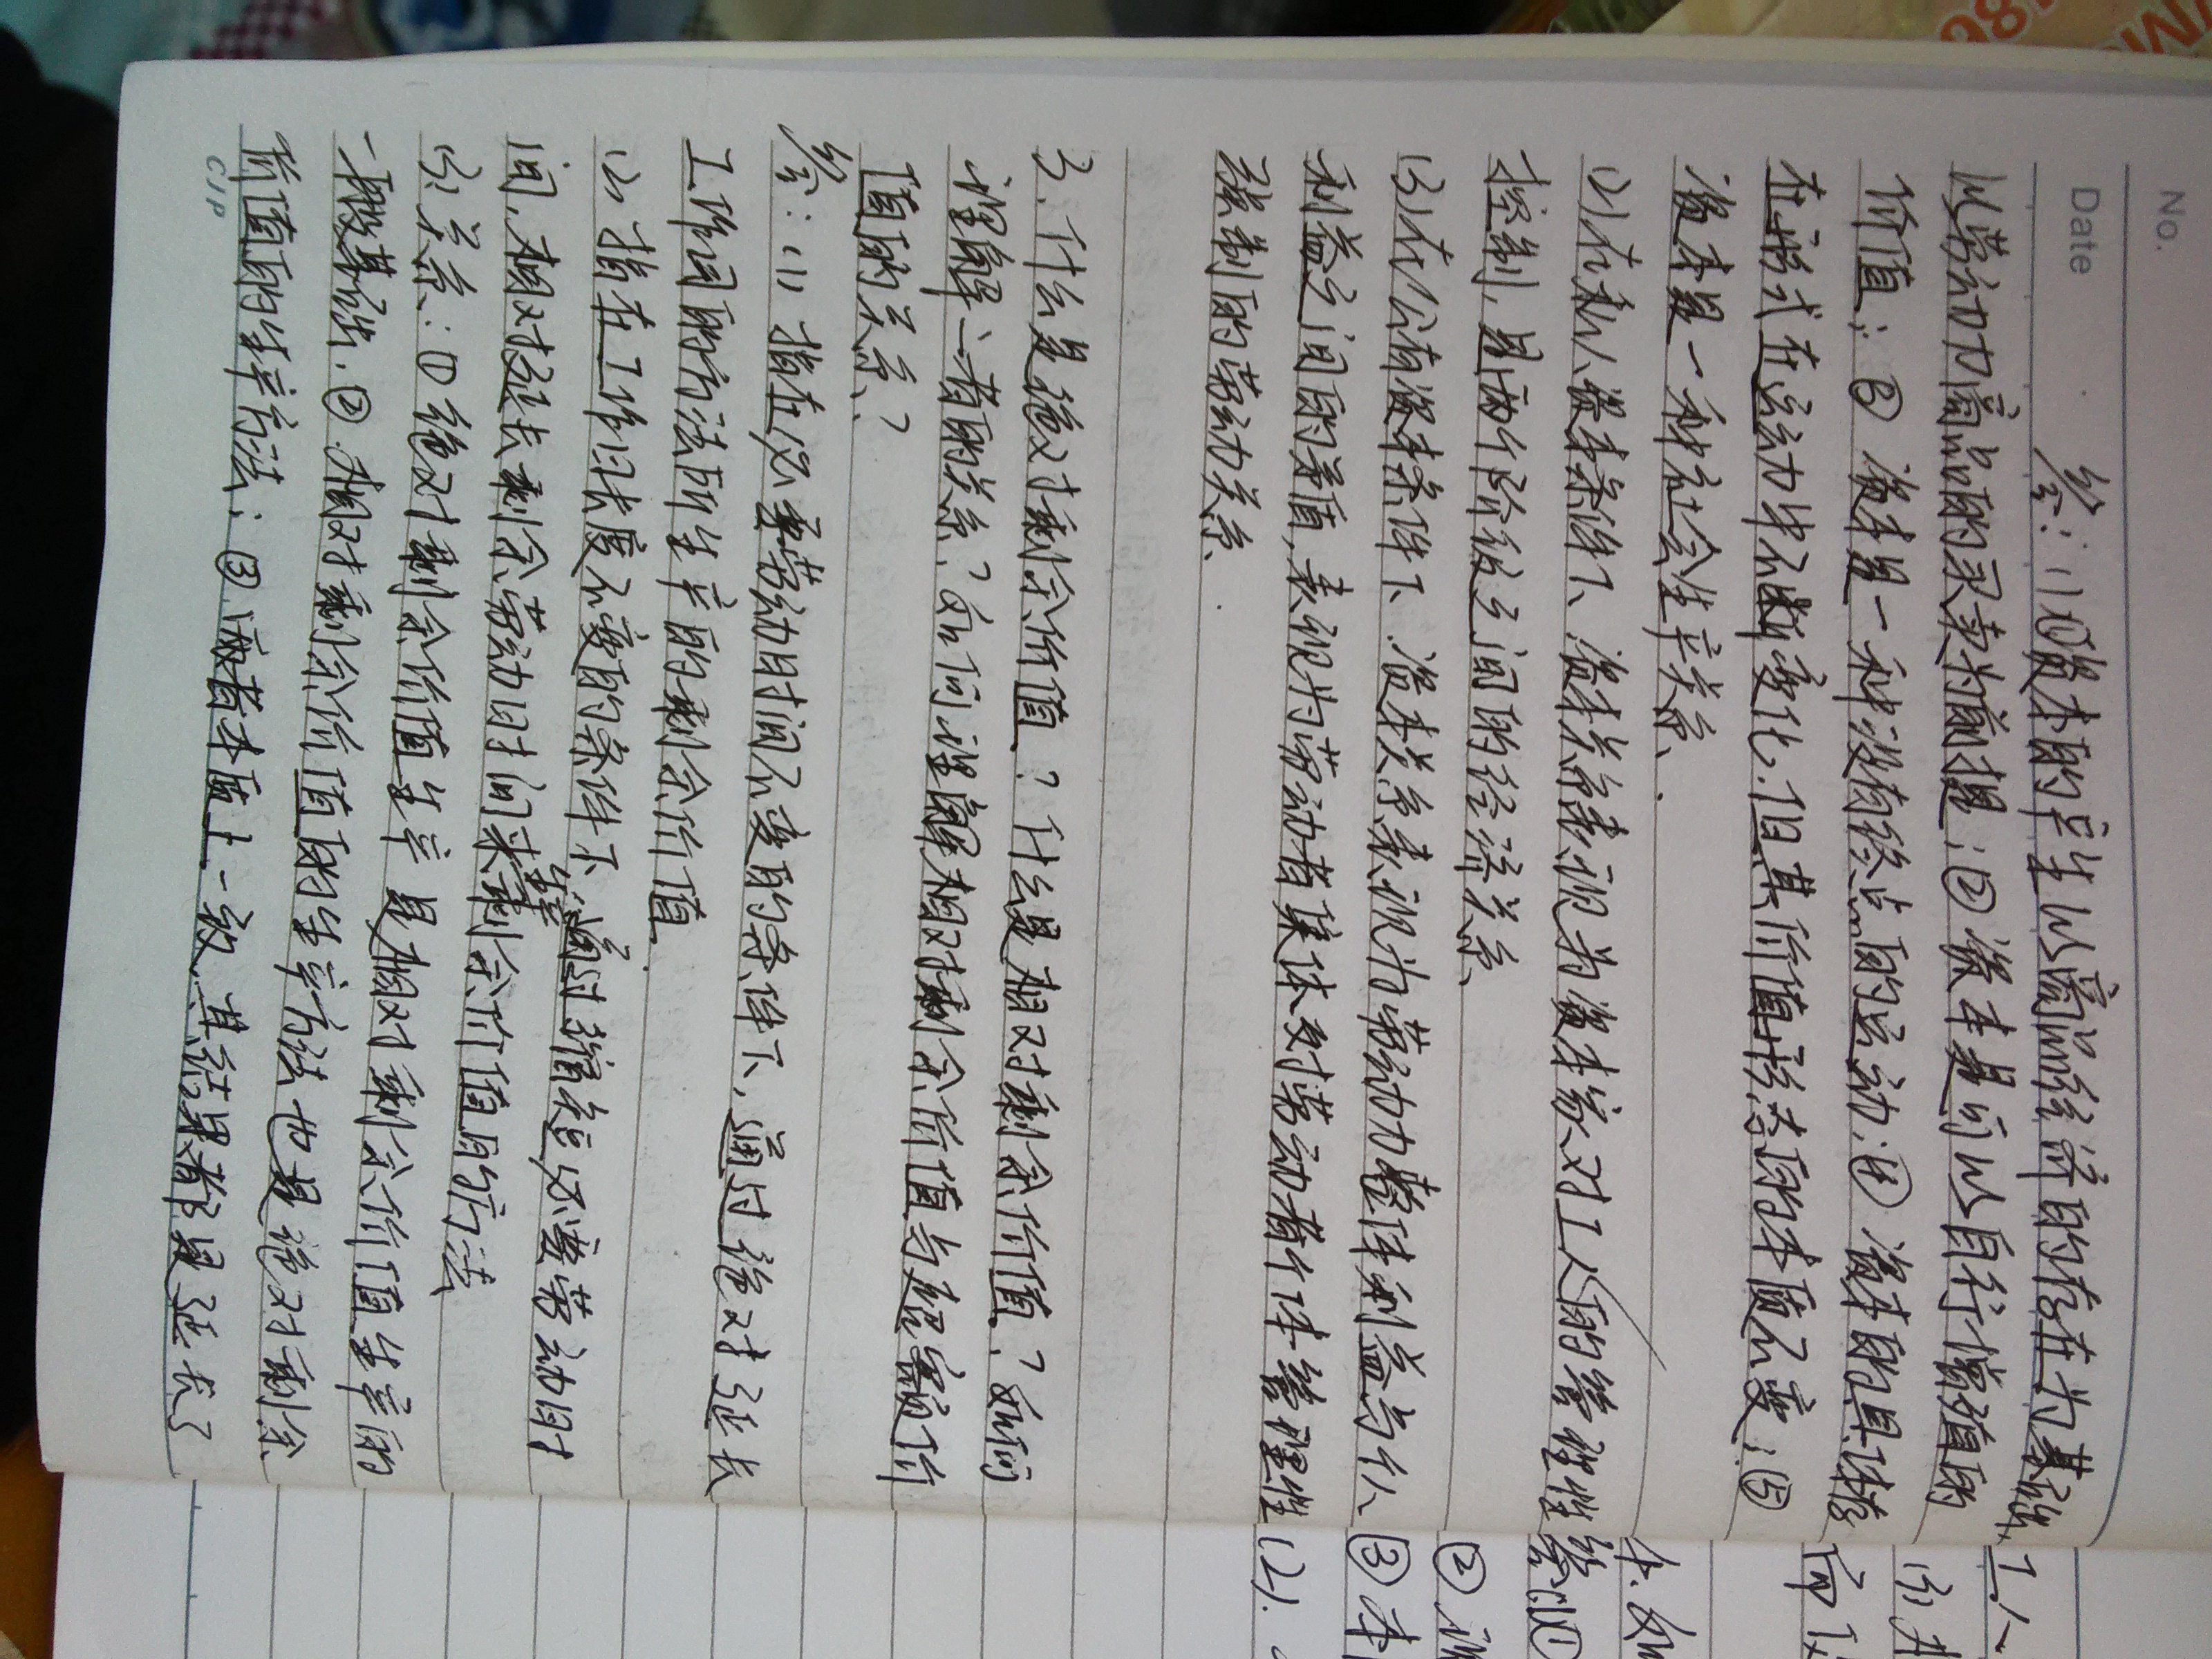 No.
Date
答：(1)①资本的产生以商品经济的存在为基础，
以劳动力商品的买卖为前提；②资本是可以自行增殖的
价值；③资本是一种没有终点的运动；④资本的具体存
在形式在运动中不断变化，但其价值形态的本质不变；⑤
资本是一种社会生产关系、
(2)在私人资本条件下、资本关系表现为资本家对工人的管理性
控制，是两个阶级之间的经济关系、
(3)在公有资本条件下、资本关系表现为劳动力整体利益与个人
利益之间的矛盾，表现为劳动者集体对劳动者个体管理性
强制的劳动关系、
3、什么是绝对剩余价值？什么是相对剩余价值？如何
理解二者的关系？如何理解相对剩余价值与超额价
值的关系？
答：(1)、指在必要劳动时间不变的条件下，通过绝对延长
工作间的方法所生产的剩余价值.
(2)、指在工作日长度不变的条件下、通过缩短必要劳动时
间、相对延长剩余劳动时间来生产剩余价值的方法
(3)、关系：①绝对剩余价值生产是相对剩余价值生产的
一般基础、②、相对剩余价值的生产方法也是绝对剩余
价值的生产方法；③、两者本质上一致、其结果都是延长了
工人
(3)
而
本、如
答(1)①
②
③本
(2)、